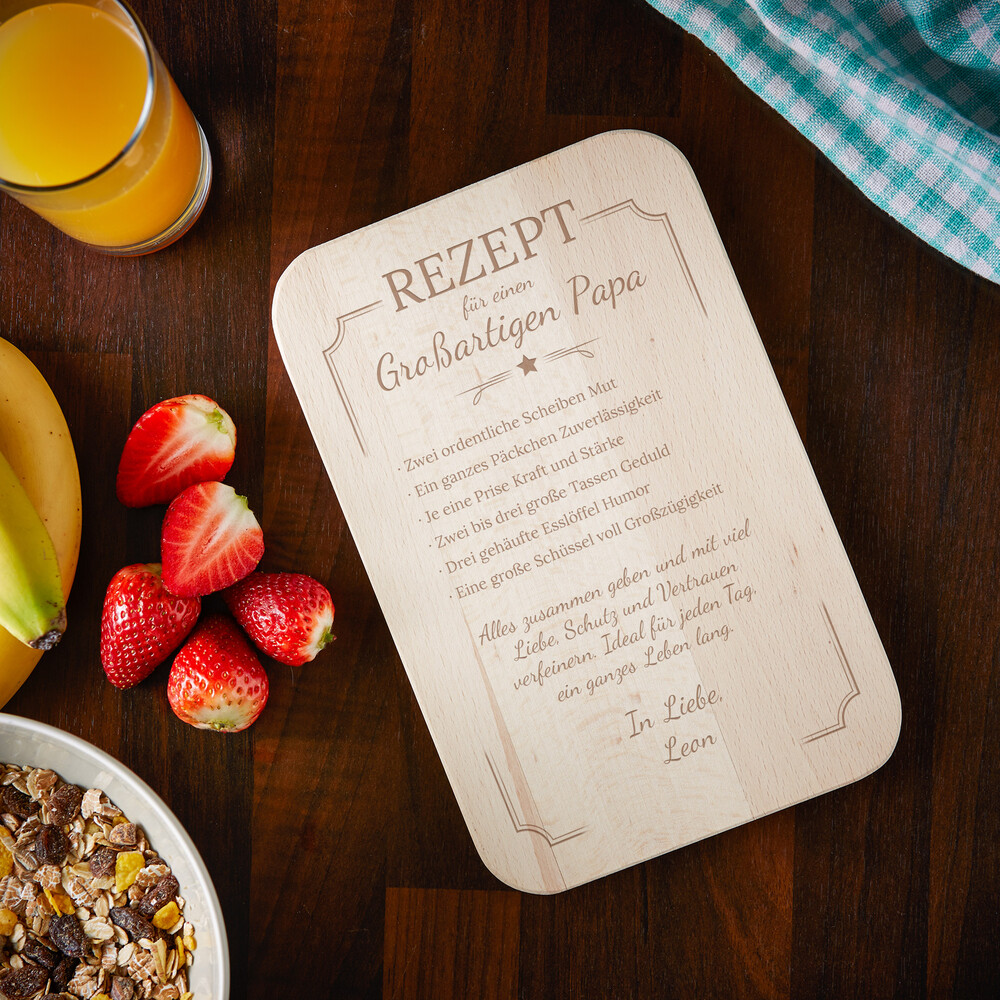 REZEPT
für einen
Großartigen Papa
· Zwei ordentliche Scheiben Mut
· Ein ganzes Päckchen Zuverlässigkeit
· Je eine Prise Kraft und Stärke
· Zwei bis drei große Tassen Geduld
· Drei gehäufte Esslöffel Humor
· Eine große Schüssel voll Großzügigkeit
Alles zusammen geben und mit viel
Liebe, Schutz und Vertrauen
verfeinern. Ideal für jeden Tag,
ein ganzes Leben lang.
In Liebe,
Leon